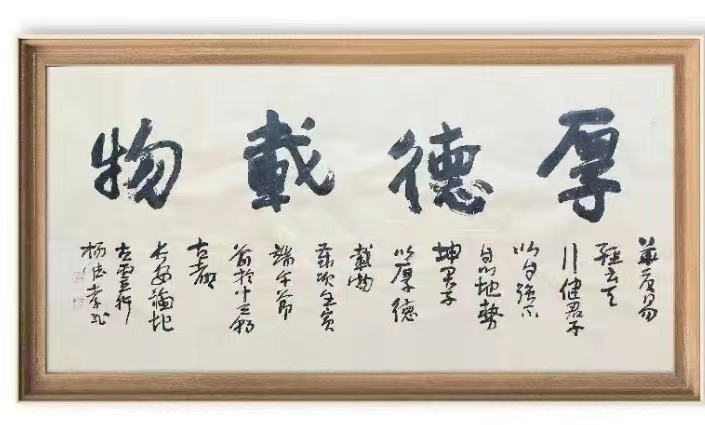 厚德載物
華夏易
經云天
行健君子
以自強不
息地勢
坤君子
以厚德
載物
歲次壬寅
端午節
前於十三朝
古都
長安